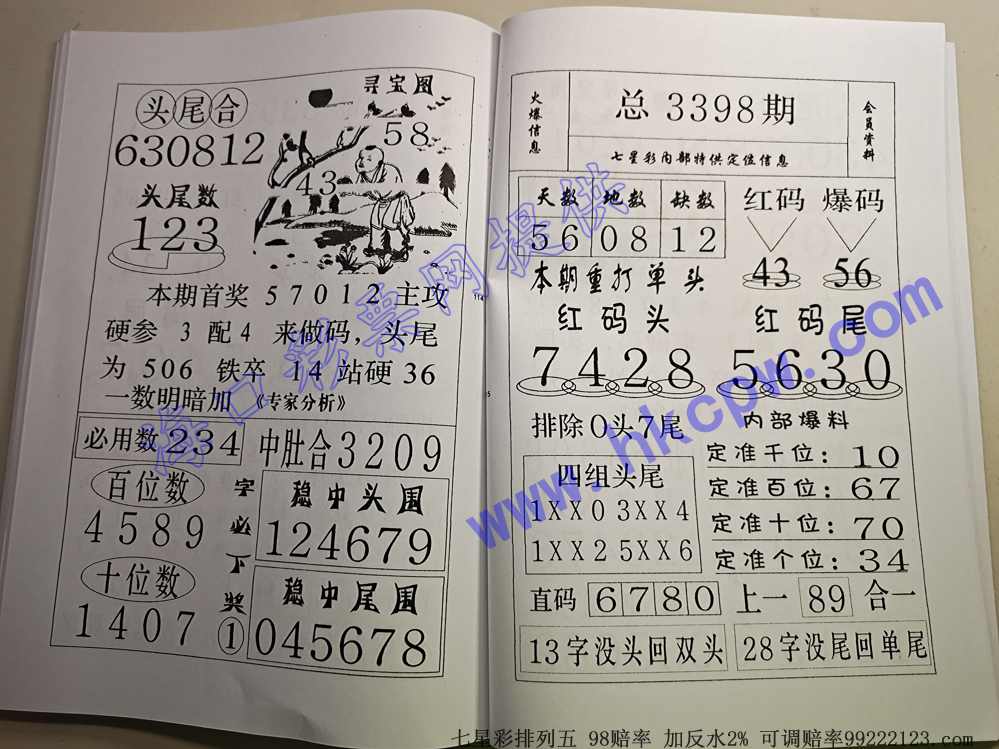 寻宝图
头尾合
630812
58
43
头尾数
123
本期首奖 57012 主攻
硬参 3 配 4 来做码，头尾
为 506 铁卒 14 站硬 36
一数明暗加 《专家分析》
必用数 234
中肚合 3209
百位数
4589
十位数
1407
字必下奖①
稳中头围
124679
稳中尾围
045678
火爆信息
总 3398 期
七星彩内部特供定位信息
会员资料
天数 地数 缺数
56 08 12
红码 爆码
43 56
本期重打单头
红码头 红码尾
7428 5630
排除 0 头 7 尾
内部爆料
四组头尾
1XX0 3XX4
1XX2 5XX6
定准千位：10
定准百位：67
定准十位：70
定准个位：34
直码 6780 上一 89 合一
13字没头回双头 28字没尾回单尾
海口彩票网提供
www.hkcpw.com
七星彩排列五 98赔率 加反水2% 可调赔率99222123.com